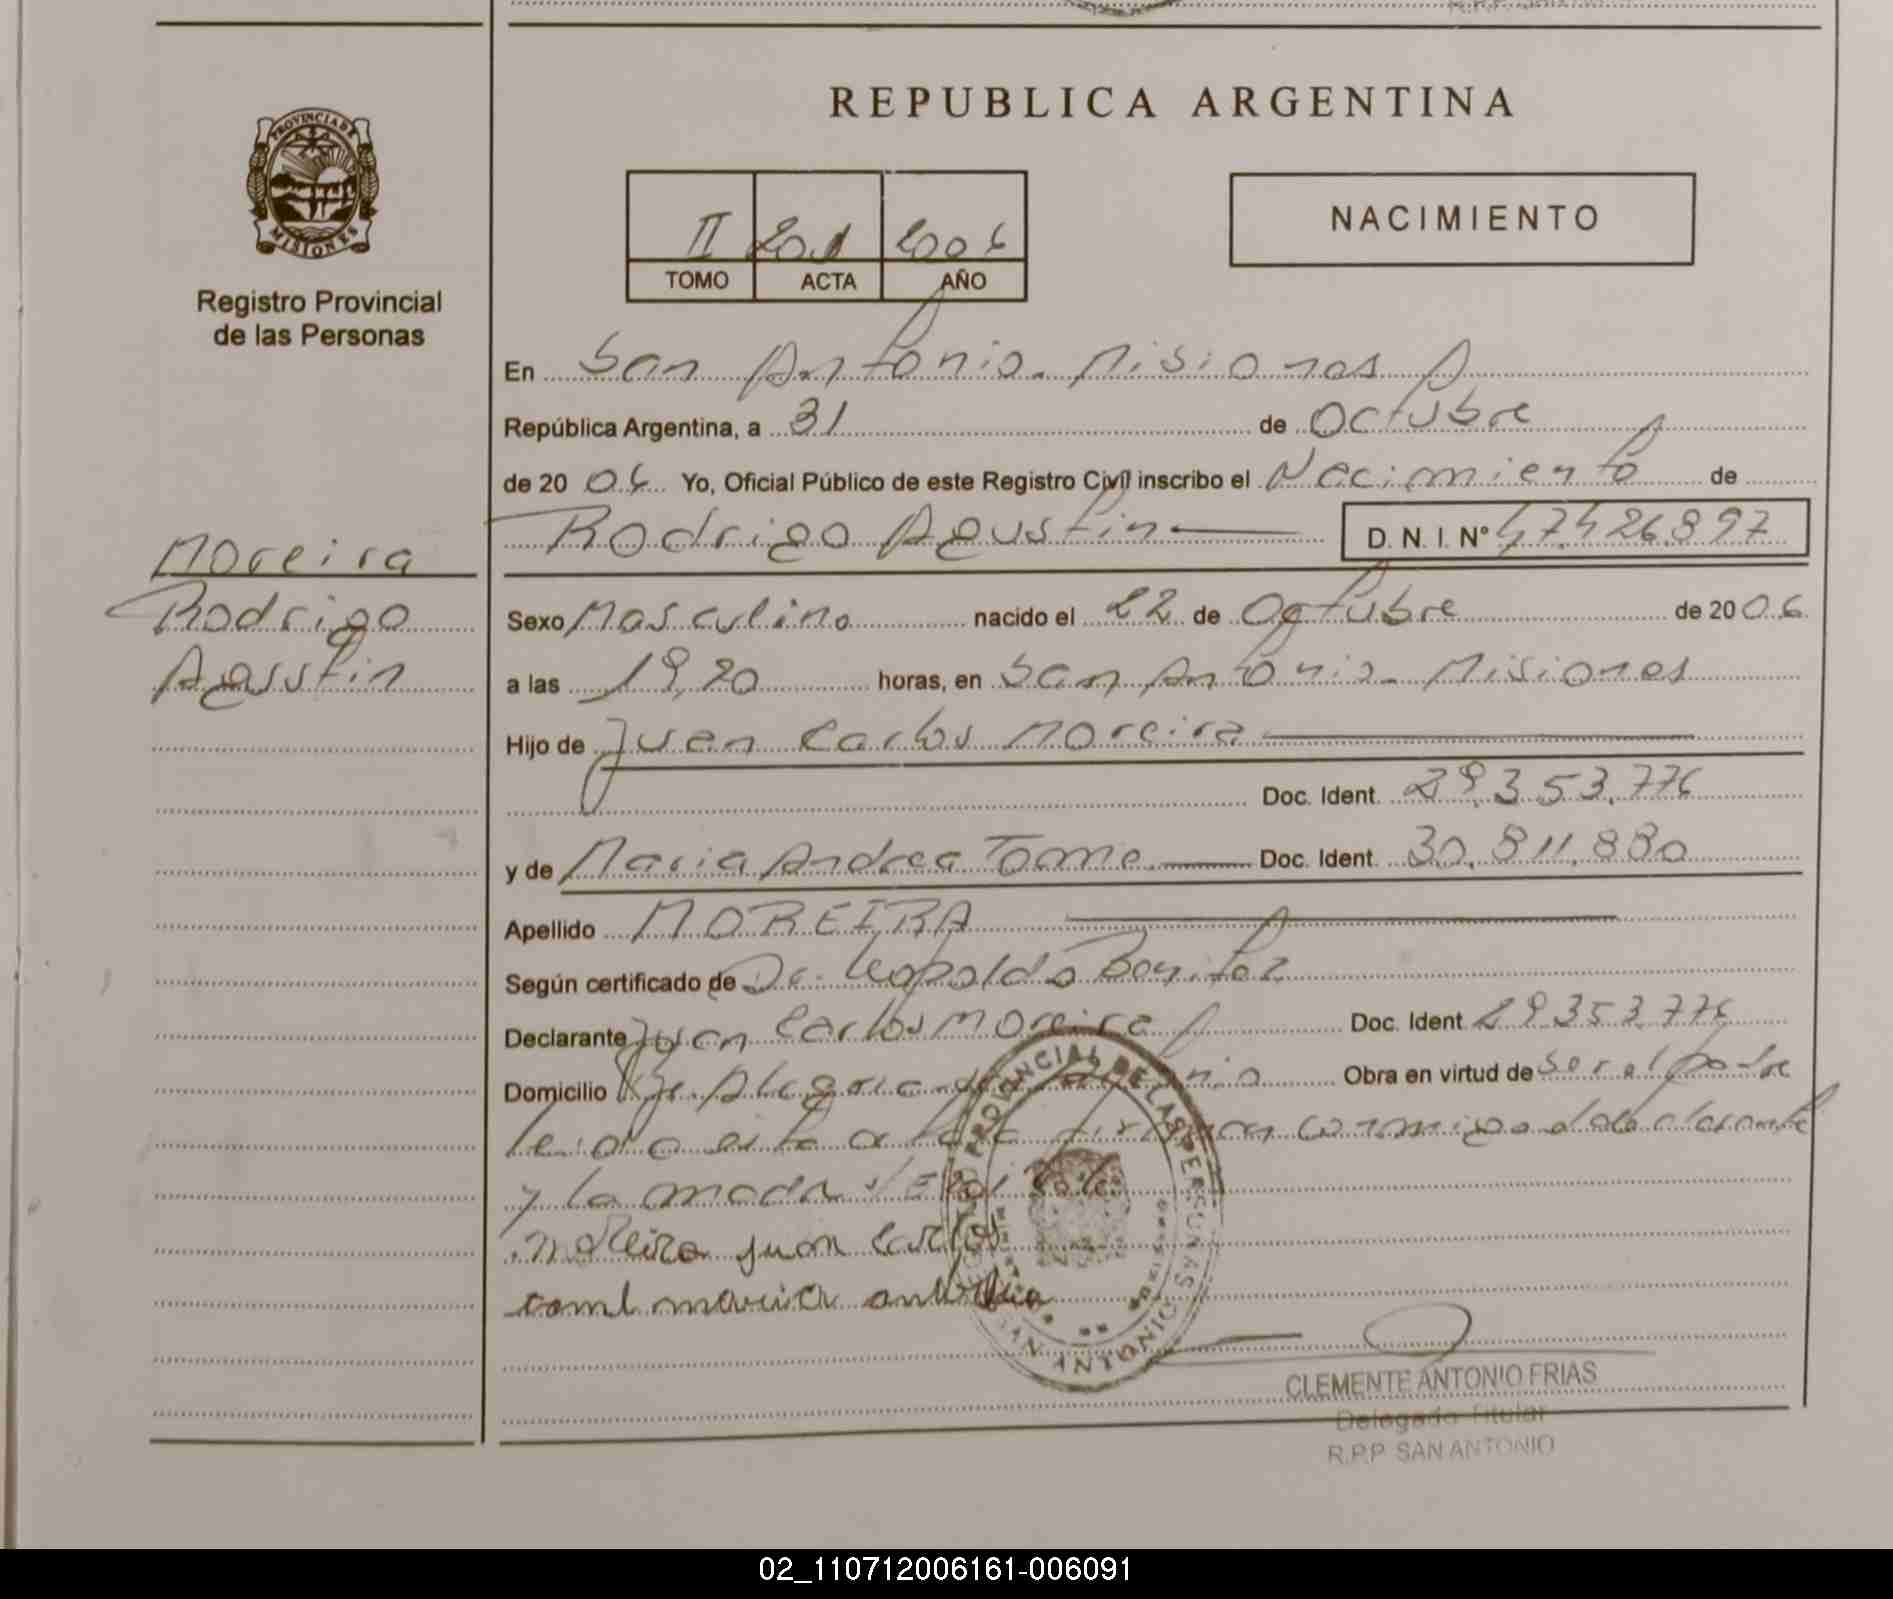 REPUBLICA ARGENTINA
PROVINCIA DE
MISIONES
Registro Provincial
de las Personas
II 201 2006
TOMO ACTA AÑO
NACIMIENTO
En San Antonio. Misiones
República Argentina, a 31 de Octubre
de 2006 Yo, Oficial Público de este Registro Civil inscribo el Nacimiento de
Rodrigo Agustin D. N. I. Nº 47.426.897
Moreira
Rodrigo
Agustin
Sexo Masculino nacido el 22 de Octubre de 2006
a las 19,20 horas, en San Antonio. Misiones
Hijo de Juan Carlos Moreira
Doc. Ident. 29.353.776
y de Maria Andrea Tome Doc. Ident. 30.811.880
Apellido MOREIRA
Según certificado de Dr. Leopoldo Benitez
Declarante Juan Carlos Moreira Doc. Ident. 29.353.776
Domicilio Obra en virtud de ser el padre
leida esta acta firman conmigo el declarante
y la madre
moreira juan carlos
maria
PROVINCIAL DE LAS PERSONAS
CLEMENTE ANTONIO FRIAS
Delegado Titular
R.P.P. SAN ANTONIO
02_110712006161-006091